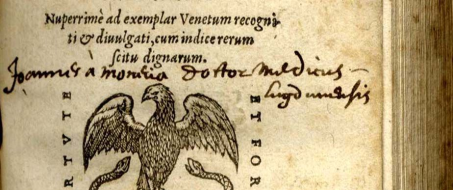 Nuperrimè ad exemplar Venetum recogni-
ti & diuulgati, cum indice rerum
scitu dignarum.
Joannes à moneria doctor medicus
lugdunensis
RTVTE
ET FOR